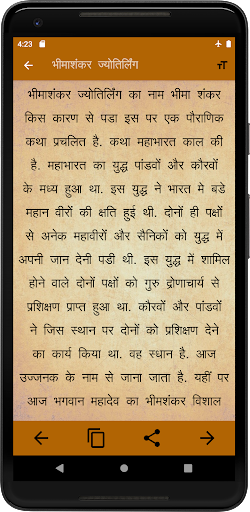 4:23
भीमाशंकर ज्योतिर्लिंग
भीमाशंकर ज्योतिर्लिंग का नाम भीमा शंकर
किस कारण से पडा इस पर एक पौराणिक
कथा प्रचलित है. कथा महाभारत काल की
है. महाभारत का युद्ध पांडवों और कौरवों
के मध्य हुआ था. इस युद्ध ने भारत मे बडे
महान वीरों की क्षति हुई थी. दोनों ही पक्षों
से अनेक महावीरों और सैनिकों को युद्ध में
अपनी जान देनी पडी थी. इस युद्ध में शामिल
होने वाले दोनों पक्षों को गुरु द्रोणाचार्य से
प्रशिक्षण प्राप्त हुआ था. कौरवों और पांडवों
ने जिस स्थान पर दोनों को प्रशिक्षण देने
का कार्य किया था. वह स्थान है. आज
उज्जनक के नाम से जाना जाता है. यहीं पर
आज भगवान महादेव का भीमशंकर विशाल